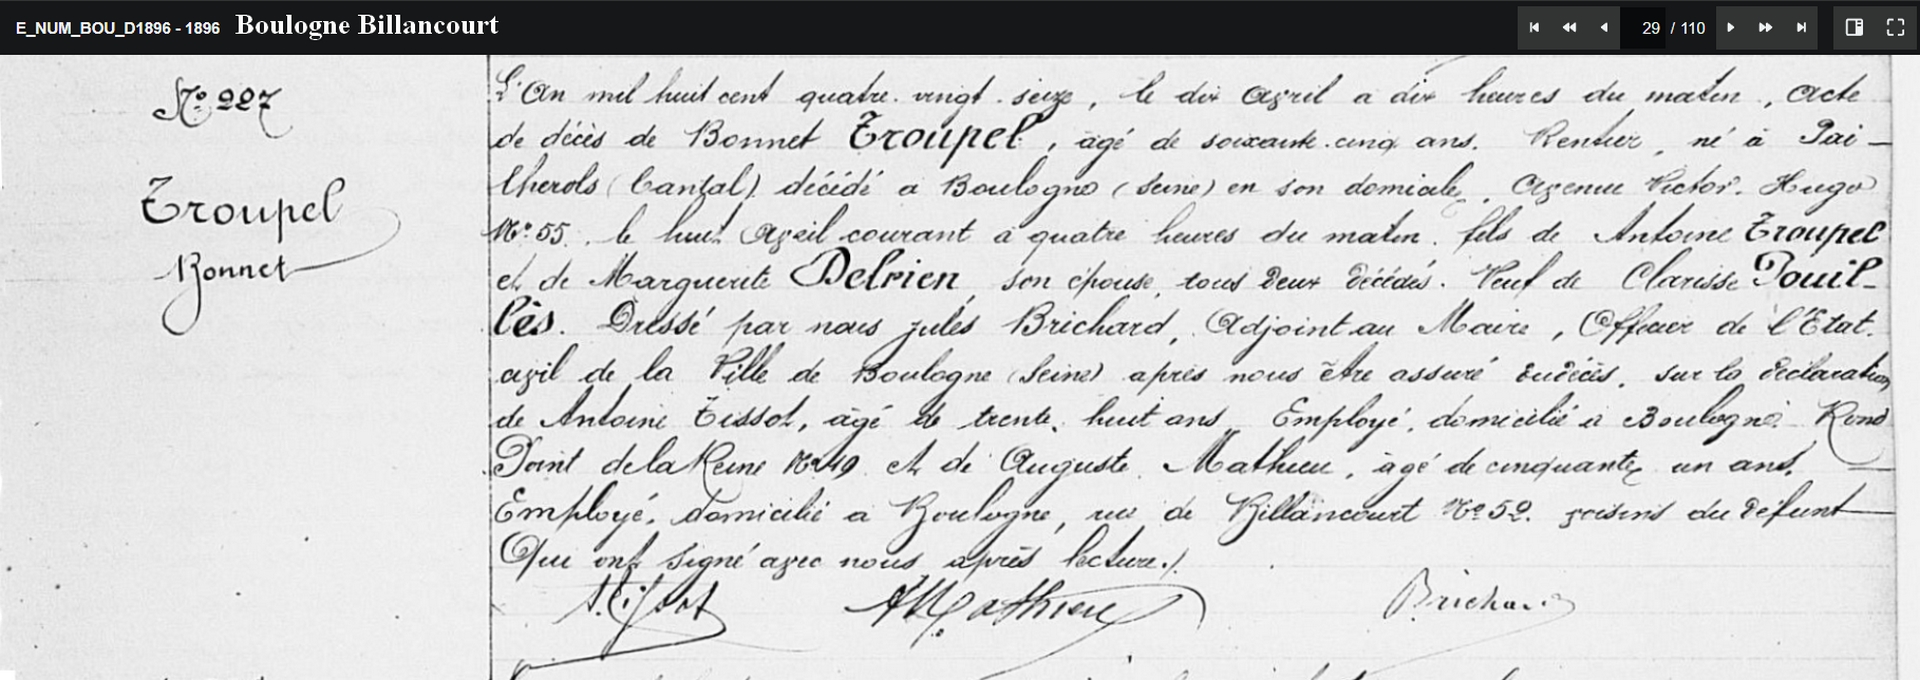 E_NUM_BOU_D1896 - 1896 Boulogne Billancourt
29 / 110
No. 227
Troupel
Bonnet
L'An mil huit cent quatre. vingt. seize, le dix Avril a dix heures du matin, Acte
de décès de Bonnet Troupel, âgé de soixante. cinq ans. Rentier, né à Pai-
lherols (Cantal). décédé a Boulogne (Seine) en son domicile, Avenue Victor. Hugo
No. 55. le huit Avril courant a quatre heures du matin. fils de Antoine Troupel
et de Marguerite Delrien, son épouse, tous deux décédés. Veuf de Clarisse Pouil-
lès. Dressé par nous Jules Brichard, Adjoint au Maire, Officier de l'Etat.
civil de la Ville de Boulogne (Seine) après nous être assuré du décès, sur la déclaration
de Antoine Tissot, âgé de trente. huit ans, Employé, domicilié à Boulogne Rond
Point de la Reine No. 19. et de Auguste. Mathieu, âgé de cinquante un ans.
Employé, domicilié a Boulogne, rue de Billancourt No. 52. voisins du défunt
Qui ont signé avec nous après lecture./.
A. Tissot AMathieu Brichard